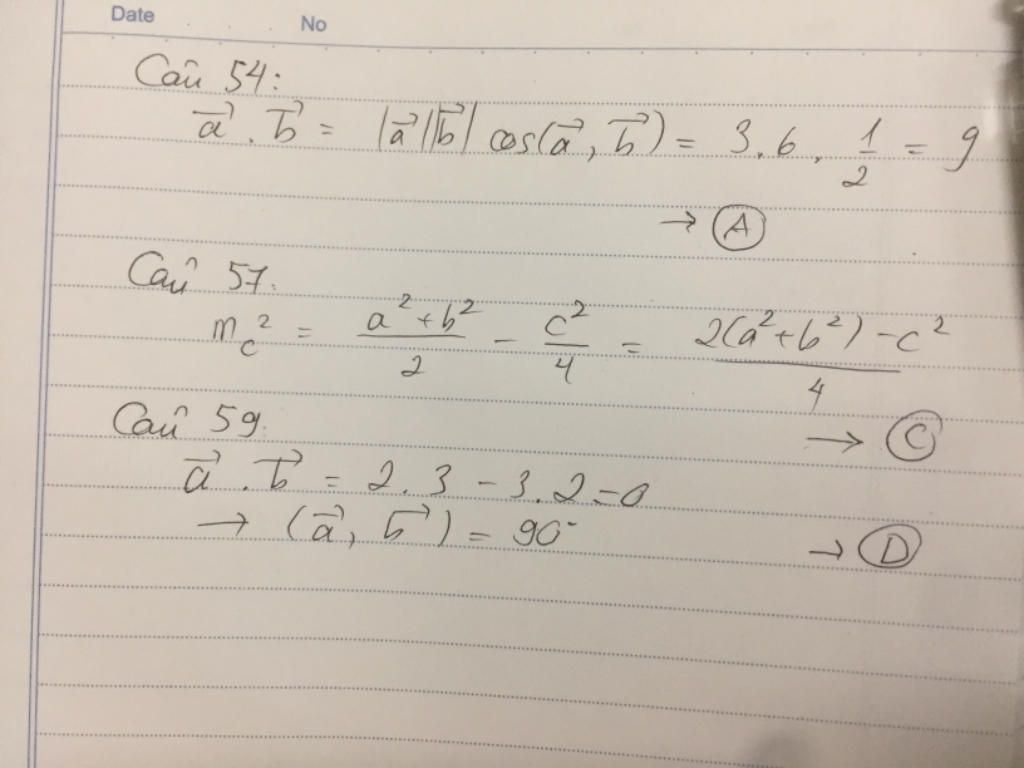 Date No
Câu 54:
$\vec{a} . \vec{b} = |\vec{a}||\vec{b}| \cos(\vec{a}, \vec{b}) = 3.6.\frac{1}{2} = 9$
→ Ⓐ
Câu 57:
$m_c^2 = \frac{a^2+b^2}{2} - \frac{c^2}{4} = \frac{2(a^2+b^2)-c^2}{4}$
→ Ⓒ
Câu 59:
$\vec{a} . \vec{b} = 2.3 - 3.2 = 0$
$→ (\vec{a}, \vec{b}) = 90°$ → Ⓓ